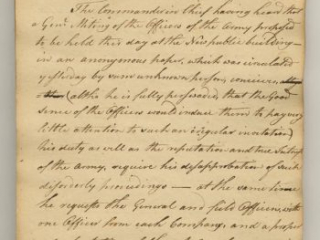 The Commander in Chief having heard that
a Genl. Meeting of the Officers of the Army proposed
to be held this day at the New public building
in an anonymous paper, which was circulated
yesterday by some unknown person, conceives
(altho he is fully persuaded that the good
sense of the Officers would induce them to pay very
little attention to such an irregular invitation)
his duty as well as the reputation and true interest
of the Army, require his disapprobation of such
disorderly proceedings — at the same time
he requests the General and field Officers, with
one Officer from each Company, and a proper